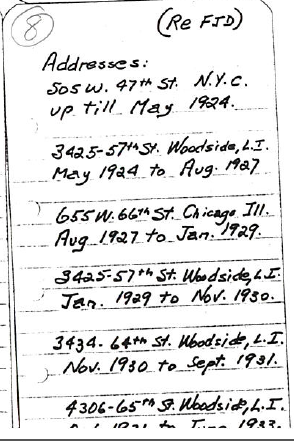 8
(Re FJD)
Addresses:
505 W. 47th St. N.Y.C.
up till May 1924.
3425-57th St. Woodside, L.I.
May 1924 to Aug. 1927
655 W. 66th St. Chicago Ill.
Aug 1927 to Jan. 1929.
3425-57th St. Woodside, L.I.
Jan. 1929 to Nov. 1930.
3434-64th St. Woodside, L.I.
Nov. 1930 to Sept. 1931.
4306-65th St. Woodside, L.I.
1931 to June 1933.